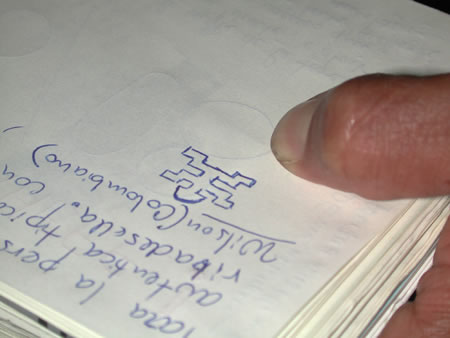 Para la pers
autentica tipica
ribadesella. con
Wilson (Colombiano)